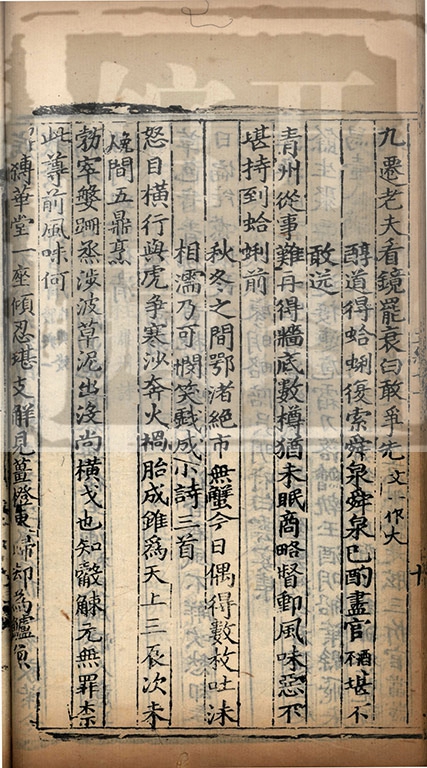 九遷老夫看鏡罷衰白敢爭先文一作大
醇道得蛤蜊復索舜泉舜泉已酌盡官酒堪不
敢送
青州從事難再得牆底數樽猶未眠商略督郵風味惡不
堪持到蛤蜊前
秋冬之間鄂渚絕市無蟹今日偶得數枚吐沫
相濡乃可憫笑戲成小詩三首
怒目橫行與虎爭寒沙奔火禍胎成雖為天上三辰次未
免人間五鼎烹
勃窣媻跚烝涉波草泥出沒尚橫戈也知觳觫元無罪柰
此尊前風味何
縛華堂一座傾忍堪支解見薑橙東歸却為鱸魚